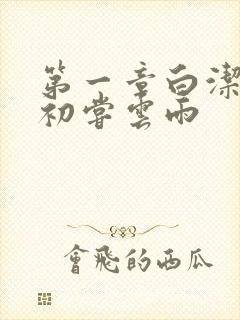 第一章白潔
初嘗雲雨
會飛的西瓜